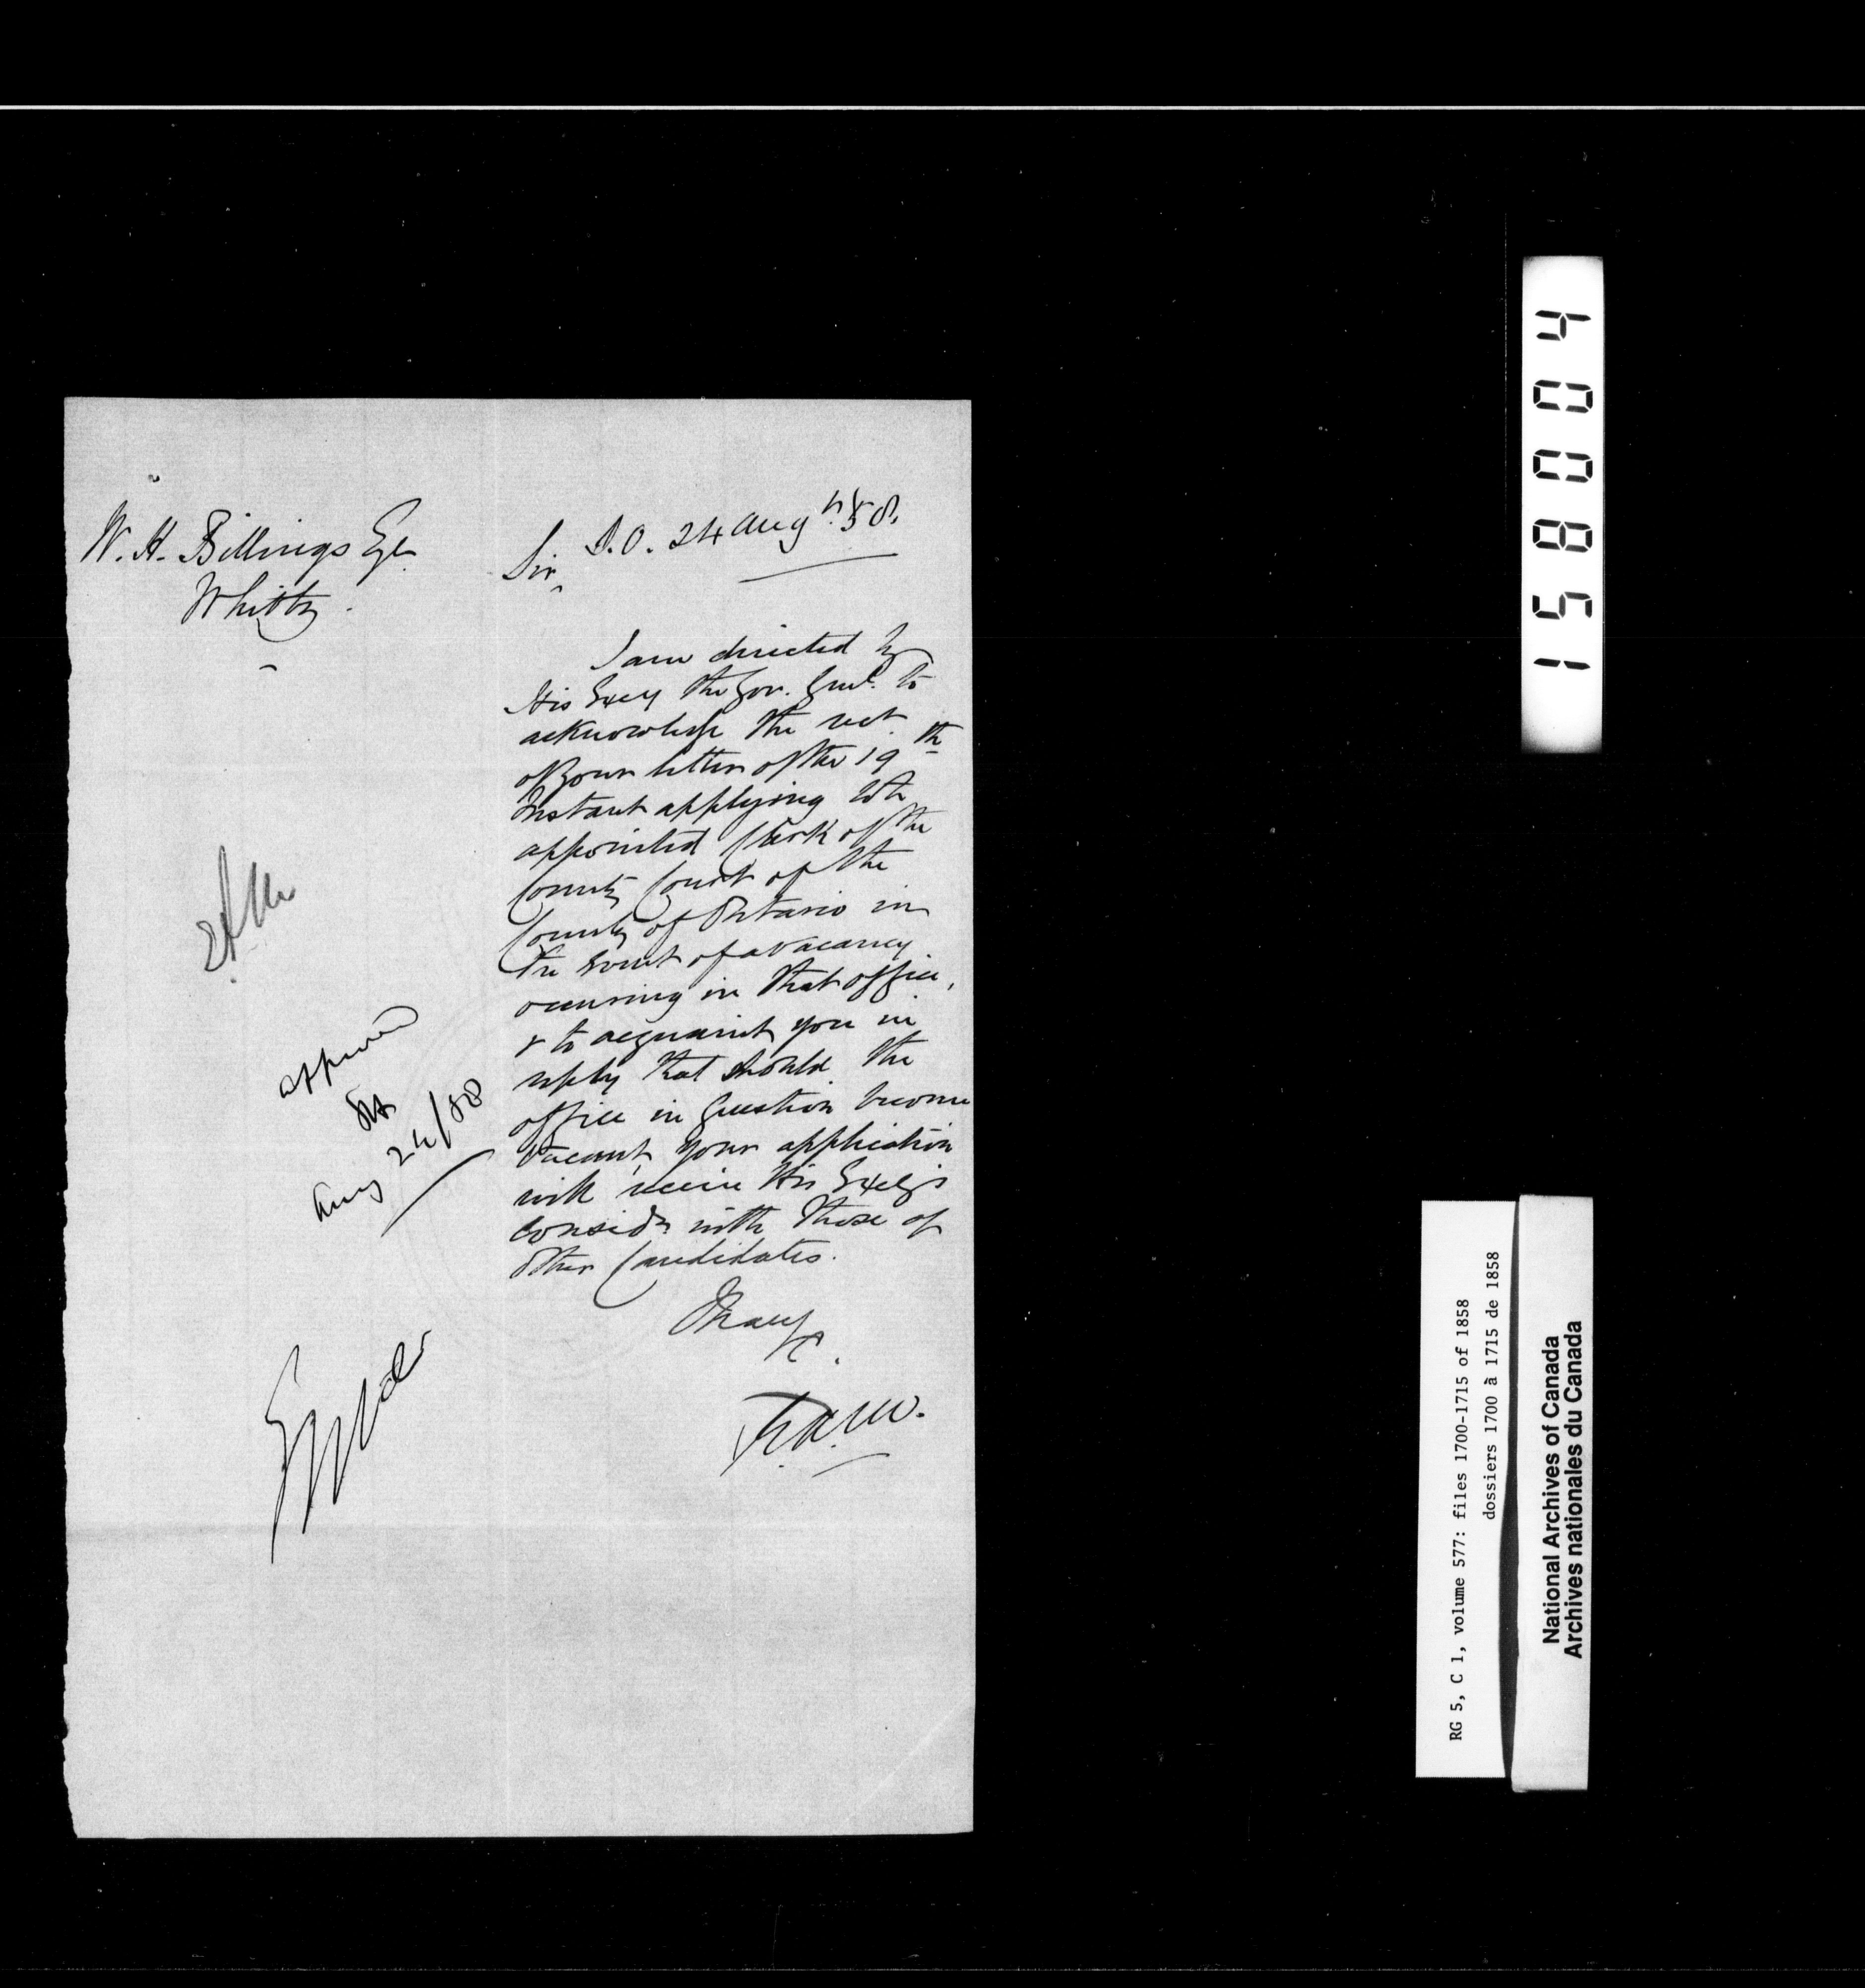 W. H. Billings Esqr.
Whitby.
S.O. 24 Augt. 58.
Sir,
I am directed by
His Excy the Gov. Genl. to
acknowledge the rect.
of your letter of the 19th
Instant applying to be
appointed Clerk of the
County Court of the
County of Ontario in
the event of a vacancy
occurring in that office,
& to acquaint you in
reply that should the
office in Question become
vacant, your application
will receive His Excy's
considn. with those of
other Candidates.
I have
&c.
approved
Aug 24/58
158004
RG 5, C 1, volume 577: files 1700-1715 of 1858
dossiers 1700 à 1715 de 1858
National Archives of Canada
Archives nationales du Canada